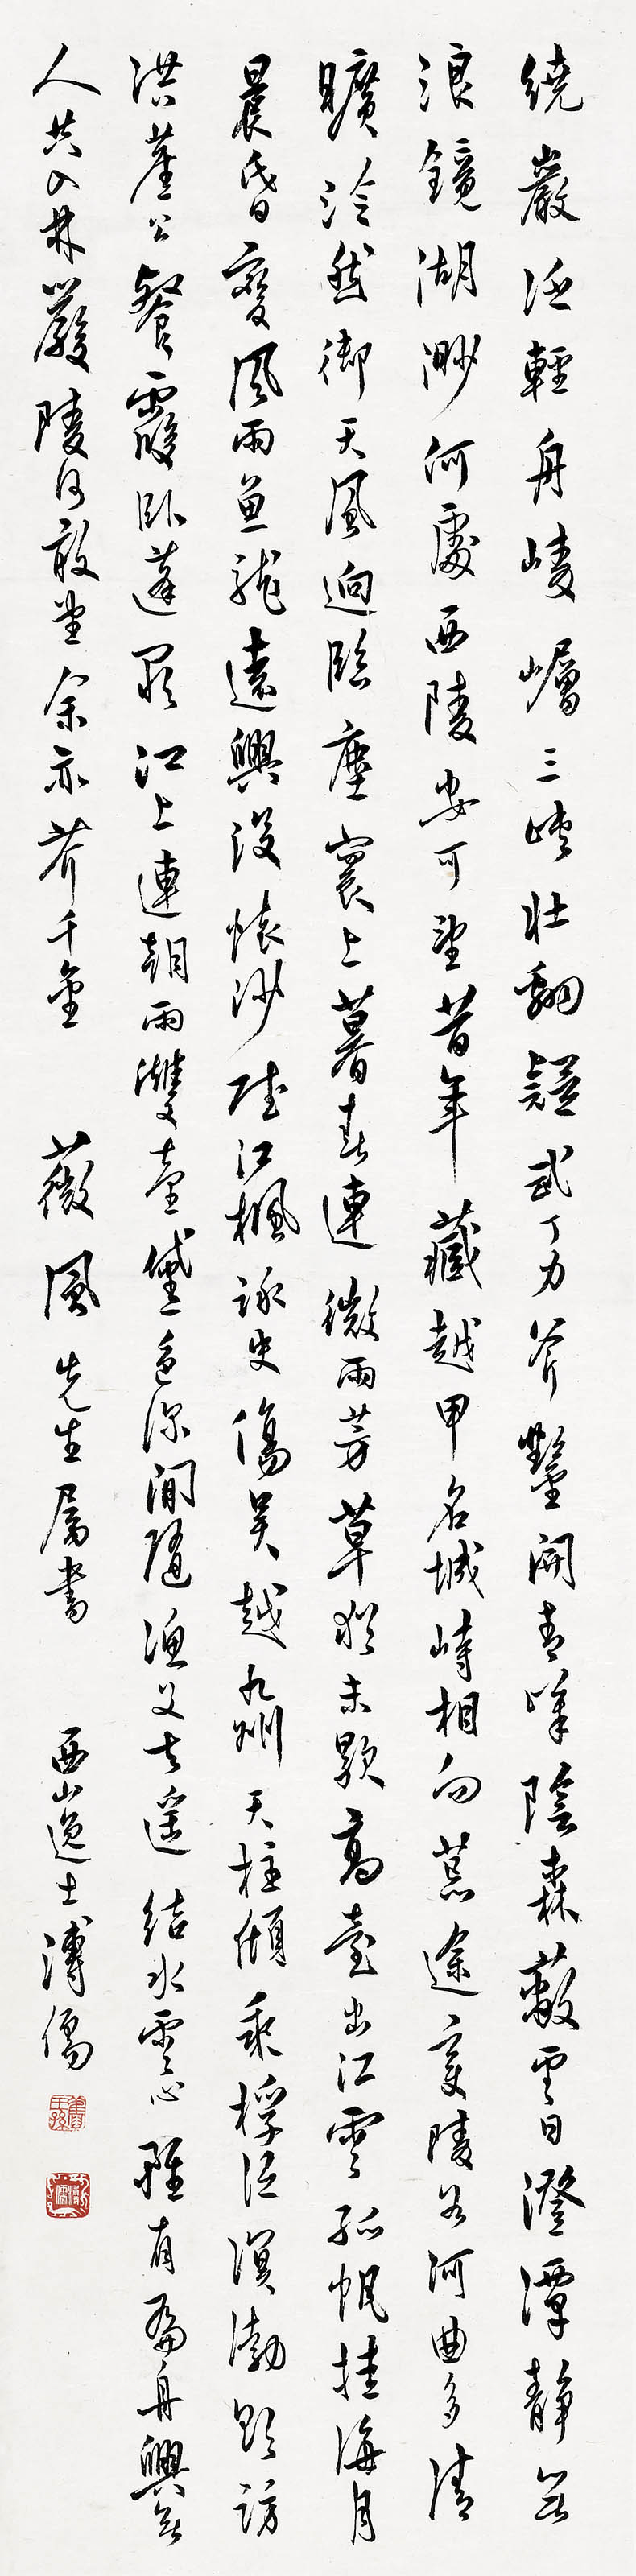 繞巖泛輕舟崚嶒三峽壯翻疑武丁力斧鑿開青嶂陰森蔽雲日澄潭靜無
浪鏡湖渺何處西陵安可望昔年藏越甲名城峙相向荒途變陵谷河曲多清
曠泠然御天風迥臨塵寰上暮春連微雨芳草猶未歇高臺出江雲孤帆挂海月
晨昏變風雨魚龍遠興沒懷沙陟江楓詠史傷吳越九州天柱傾乘桴泛溟渤欲訪
洪崖公餐霞臥蓬闕江上連朝雨雙臺黛色深閒隨漁父去遙結水雲心雖有扁舟興無
人共入林嚴陵何敢望余亦芥千金 薇風先生屬書 西山逸士溥儒
舊王孫